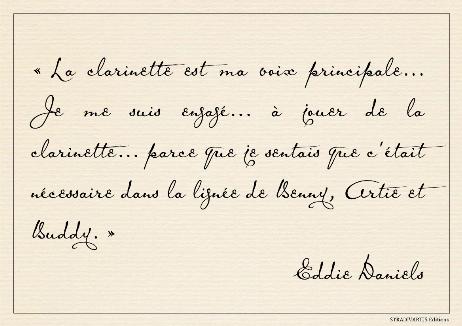 « La clarinette est ma voix principale...
Je me suis engagé... à jouer de la
clarinette... parce que je sentais que c'était
nécessaire dans la lignée de Benny, Artie et
Buddy. »
Eddie Daniels
STRADIVARIUS Editions